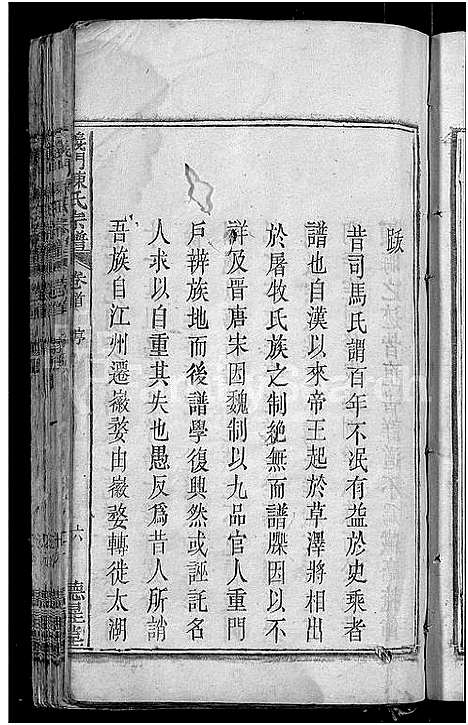 跋
昔司馬氏謂百年不泯有益於史乘者
譜也自漢以來帝王起於草澤將相出
於屠牧氏族之制絶無而譜牒因以不
詳及晋唐宋因魏制以九品官人重門
戶辨族地而後譜學復興然或誣託名
人求以自重其失也愚反為昔人所誚
吾族自江州遷徽婺由徽婺轉徙太湖
義門陳氏宗譜
卷首 序
六
德星堂